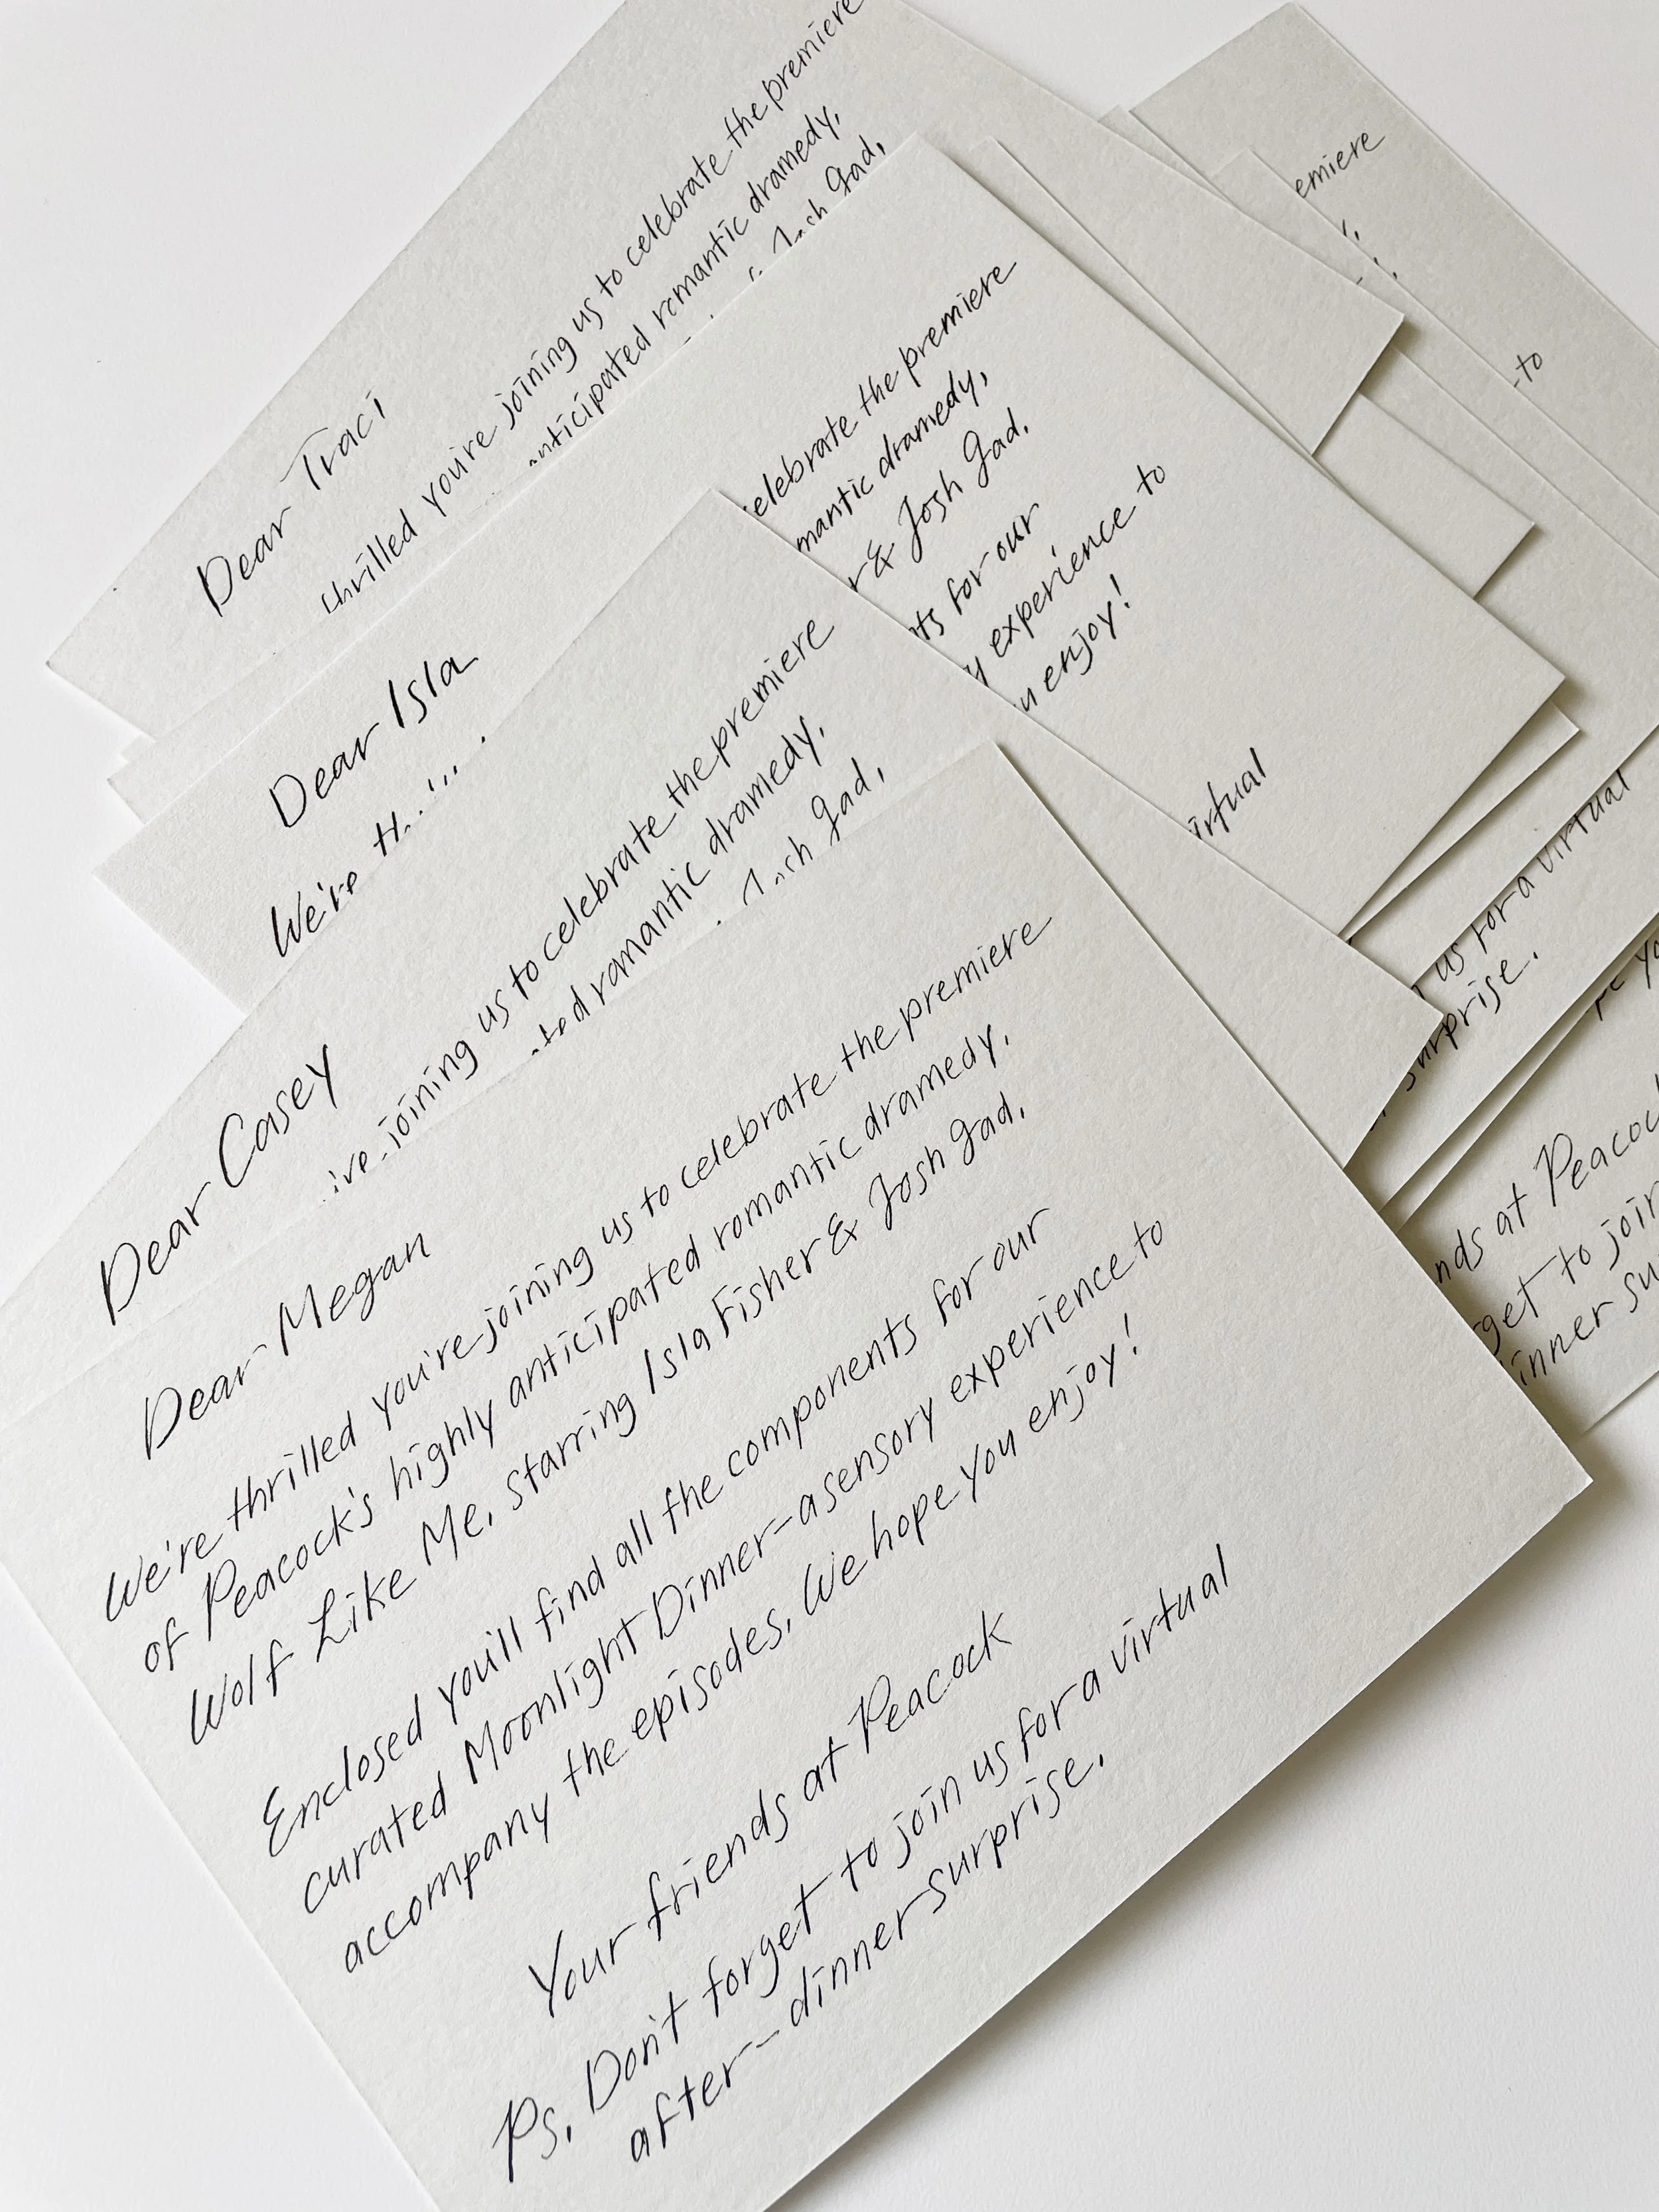 Dear Traci
thrilled you're joining us to celebrate the premiere
anticipated romantic dramedy,
Josh Gad,
Dear Isla
We're
celebrate the premiere
mantic dramedy,
& Josh Gad.
for our
experience to
enjoy!
virtual
Dear Casey
joining us to celebrate the premiere
romantic dramedy,
Gad,
Dear Megan
We're thrilled you're joining us to celebrate the premiere
of Peacock's highly anticipated romantic dramedy,
Wolf Like Me, starring Isla Fisher & Josh Gad.
Enclosed you'll find all the components for our
curated Moonlight Dinner-a sensory experience to
accompany the episodes. We hope you enjoy!
Your friends at Peacock
Ps. Don't forget to join us for a virtual
after-dinner surprise.
emiere
to
us for a virtual
surprise.
at Peacock
to join